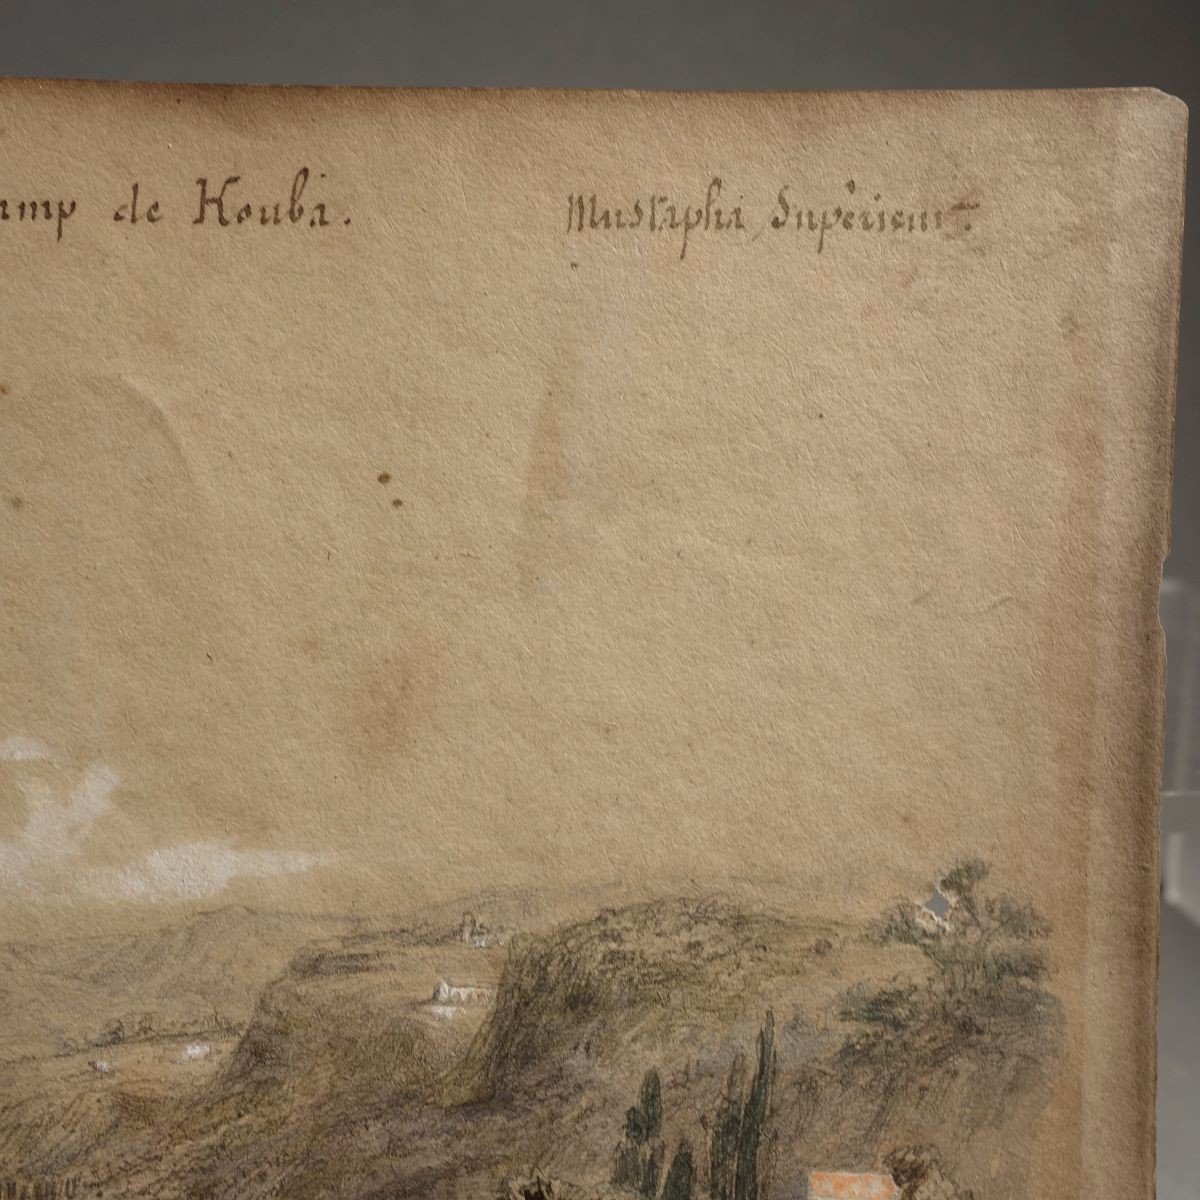 amp de Kouba. Mustapha Supérieur.